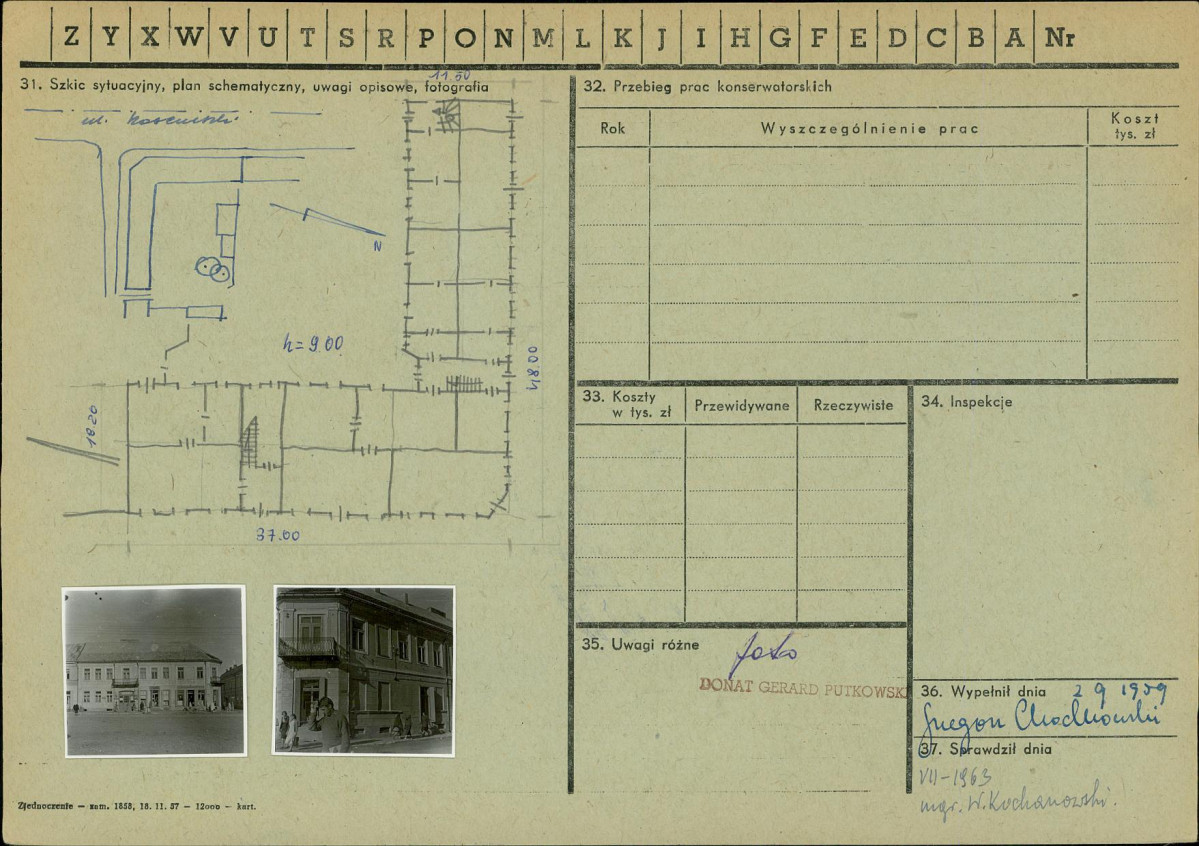 Z Y X W V U T S R P O N M L K J I H G F E D C B A Nr
31. Szkic sytuacyjny, plan schematyczny, uwagi opisowe, fotografia
11.50
ul.
N
h = 9.00
48.00
10.20
37.00
Zjednoczenie — zam. 1858, 18. 11. 57 — 12000 — kart.
32. Przebieg prac konserwatorskich
Rok
Wyszczególnienie prac
Koszt
tys. zł
33. Koszty
w tys. zł
Przewidywane
Rzeczywiste
34. Inspekcje
35. Uwagi różne
foto
DONAT GERARD PUTKOWSKI
36. Wypełnił dnia 2 9 1959
37. Sprawdził dnia
VII-1963
mgr. W. Kochanowski.